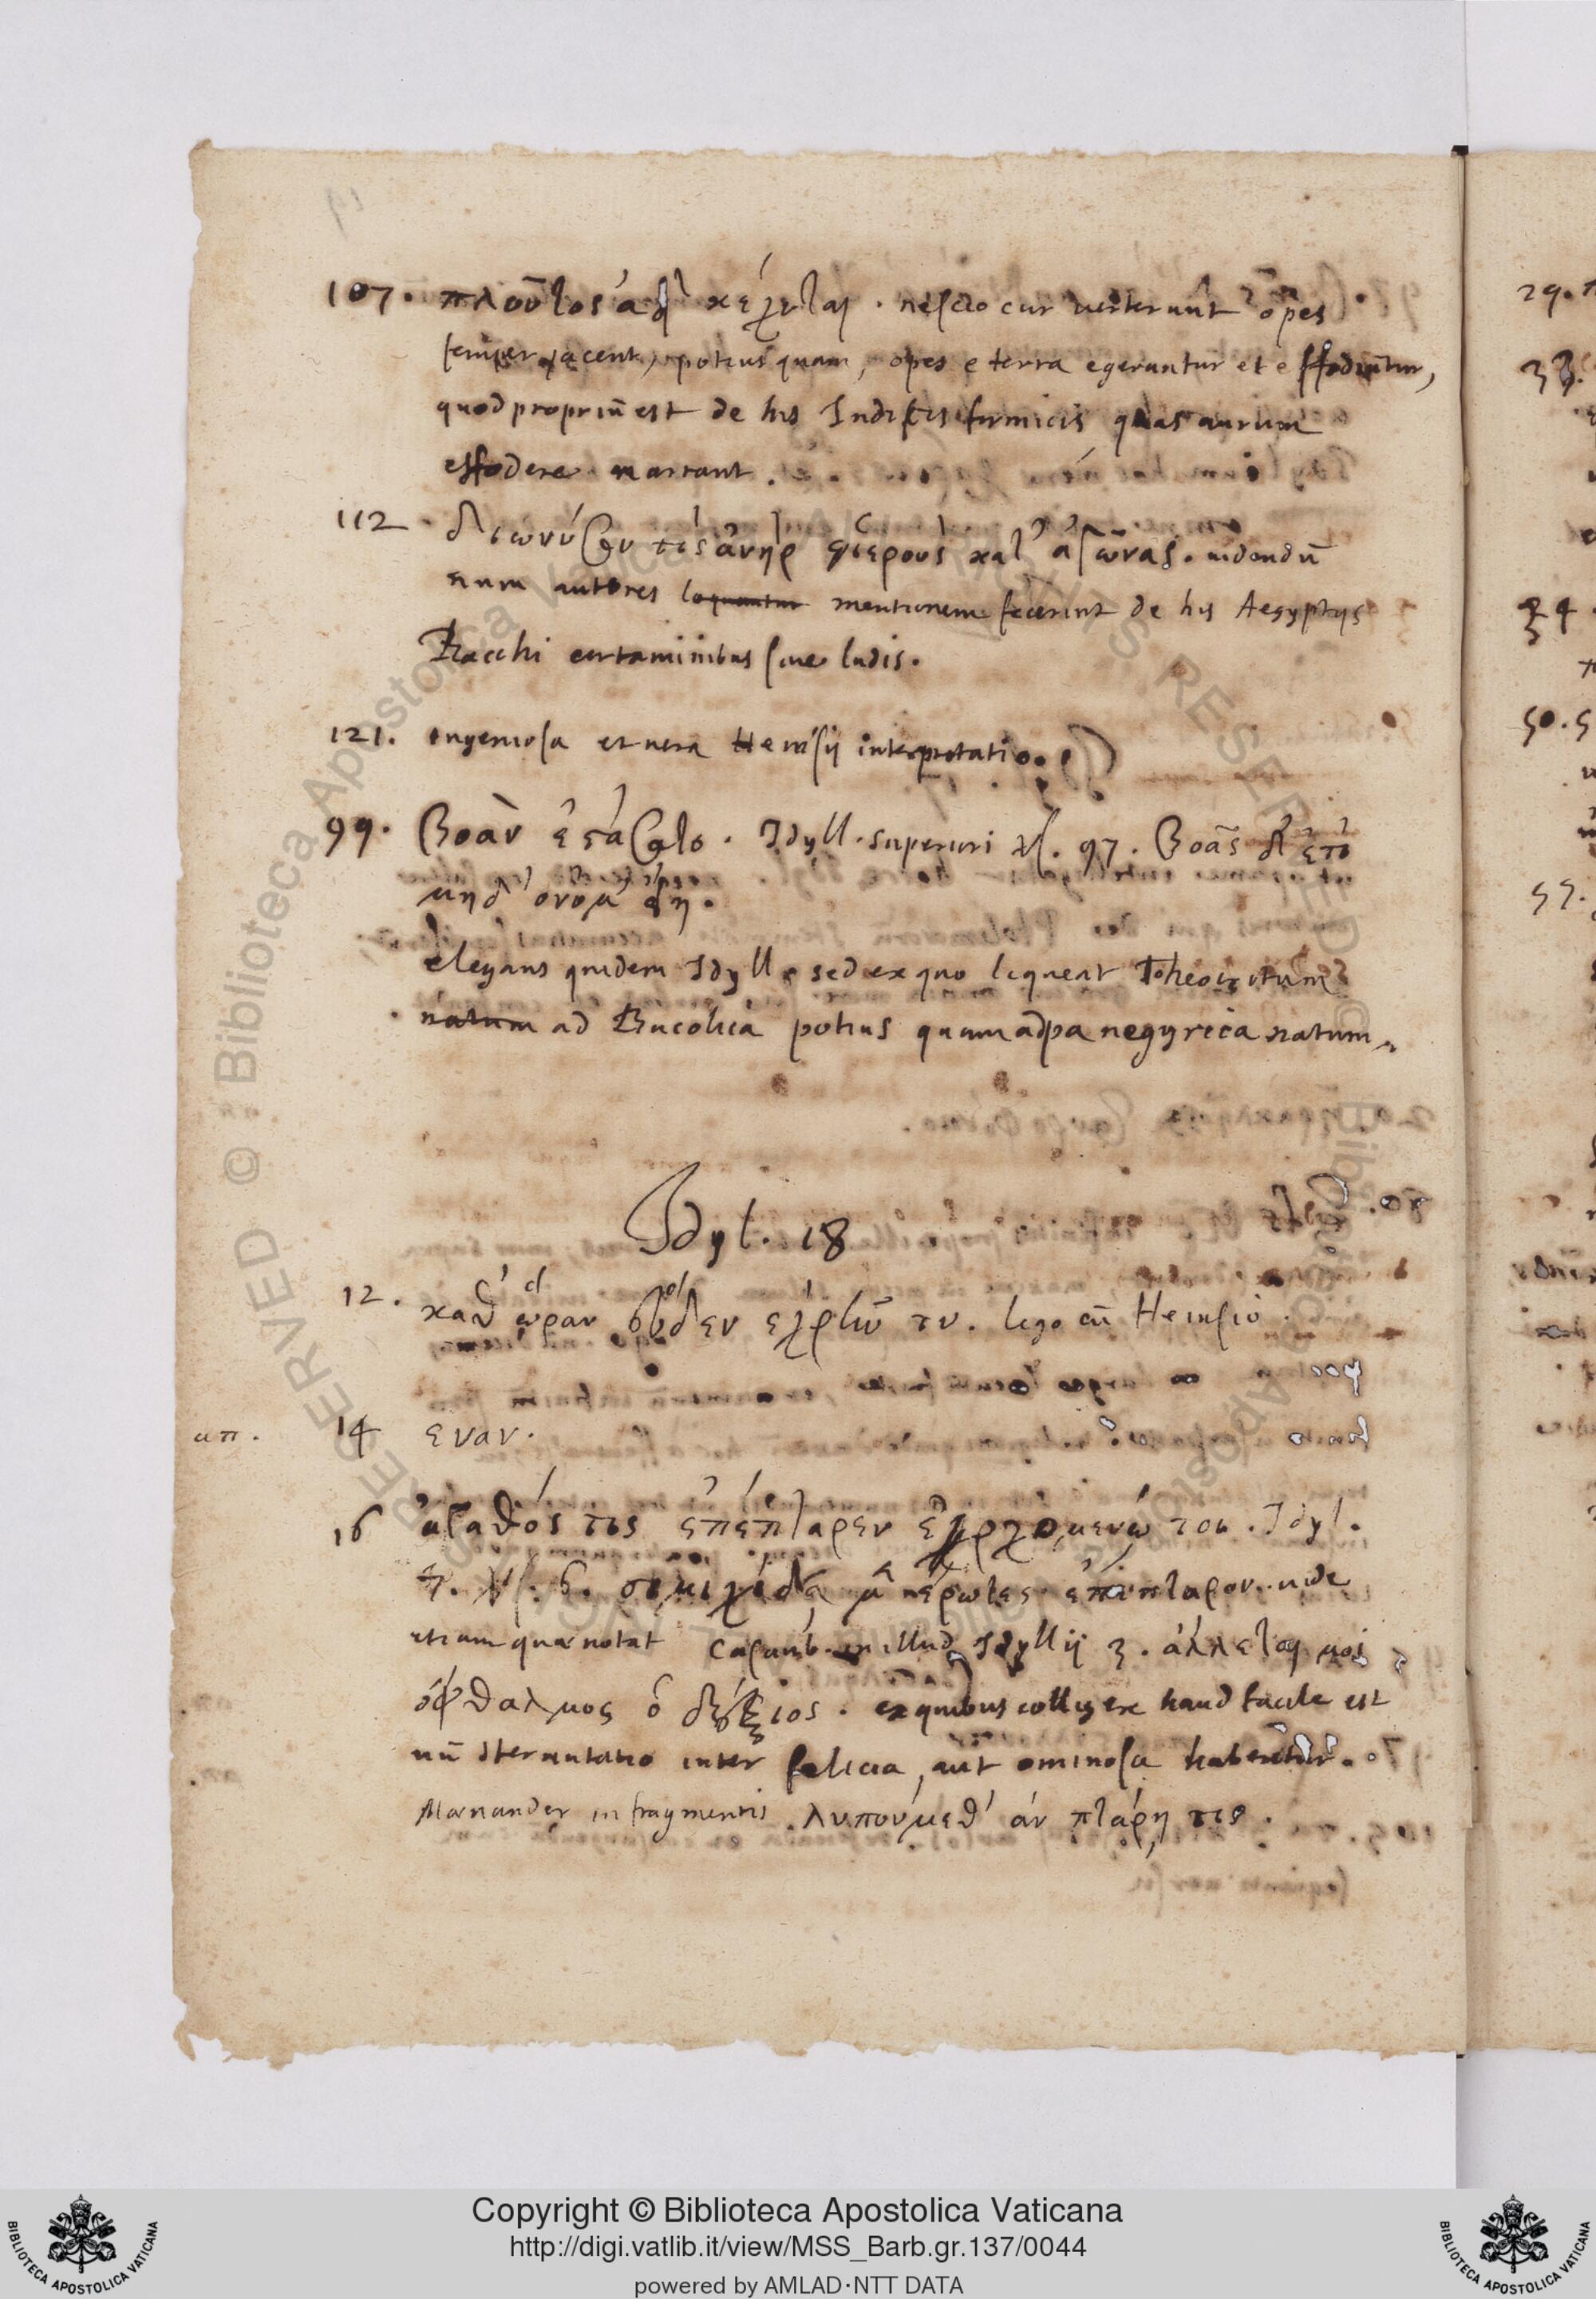 107. πλοῦτος ἀεὶ κέχυται. nescio cur verterunt opes
semper jacent, potius quam, opes e terra egeruntur et effodiuntur,
quod propriũ est de his Indicis formicis quas aurum
effodere narrant.
112. διωνύσου τις ἀνὴρ ἱεροὺς κατ' ἀγῶνας. videndũ
num autores loquantur mentionem fecerint de his Aegyptijs
Bacchi certaminibus sive ludis.
121. ingeniosa et vera Heinsij interpretatio.
99. βοὰν ἐστάσατο. Idyll. superiori 97. βοᾶς δ' ἔτι
μηδ' ὄνομ' εἴη.
elegans quidem Idyll. sed ex quo liqueat Theocritum
natum ad Bucolica potius quam ad panegyrica natum.
Idyl. 18
12. καθ' ὥραν οὐδεν ἐχρῆν τυ. lego cũ Heinsio.
απ. 14 εναν.
16 ἀγαθός τις ἐπέπταρεν ἐρχομένῳ τοι. Idyl.
7. σιμιχίδᾳ μὲν ἔρωτες ἐπέπταρον. vide
etiam quae notat Casaub. in illud Idyllij 3. ἅλλεται μοι
ὀφθαλμος ὁ δεξιος. ex quibus colligere haud facile est
nũ sternutatio inter felicia, aut ominosa haberetur.
Maenander in fragmentis. λυπούμεθ' ἀν πτάρῃ τις.
29.
34
50. 5
Copyright © Biblioteca Apostolica Vaticana
http://digi.vatlib.it/view/MSS_Barb.gr.137/0044
powered by AMLAD·NTT DATA
BIBLIOTECA APOSTOLICA VATICANA
BIBLIOTECA APOSTOLICA VATICANA